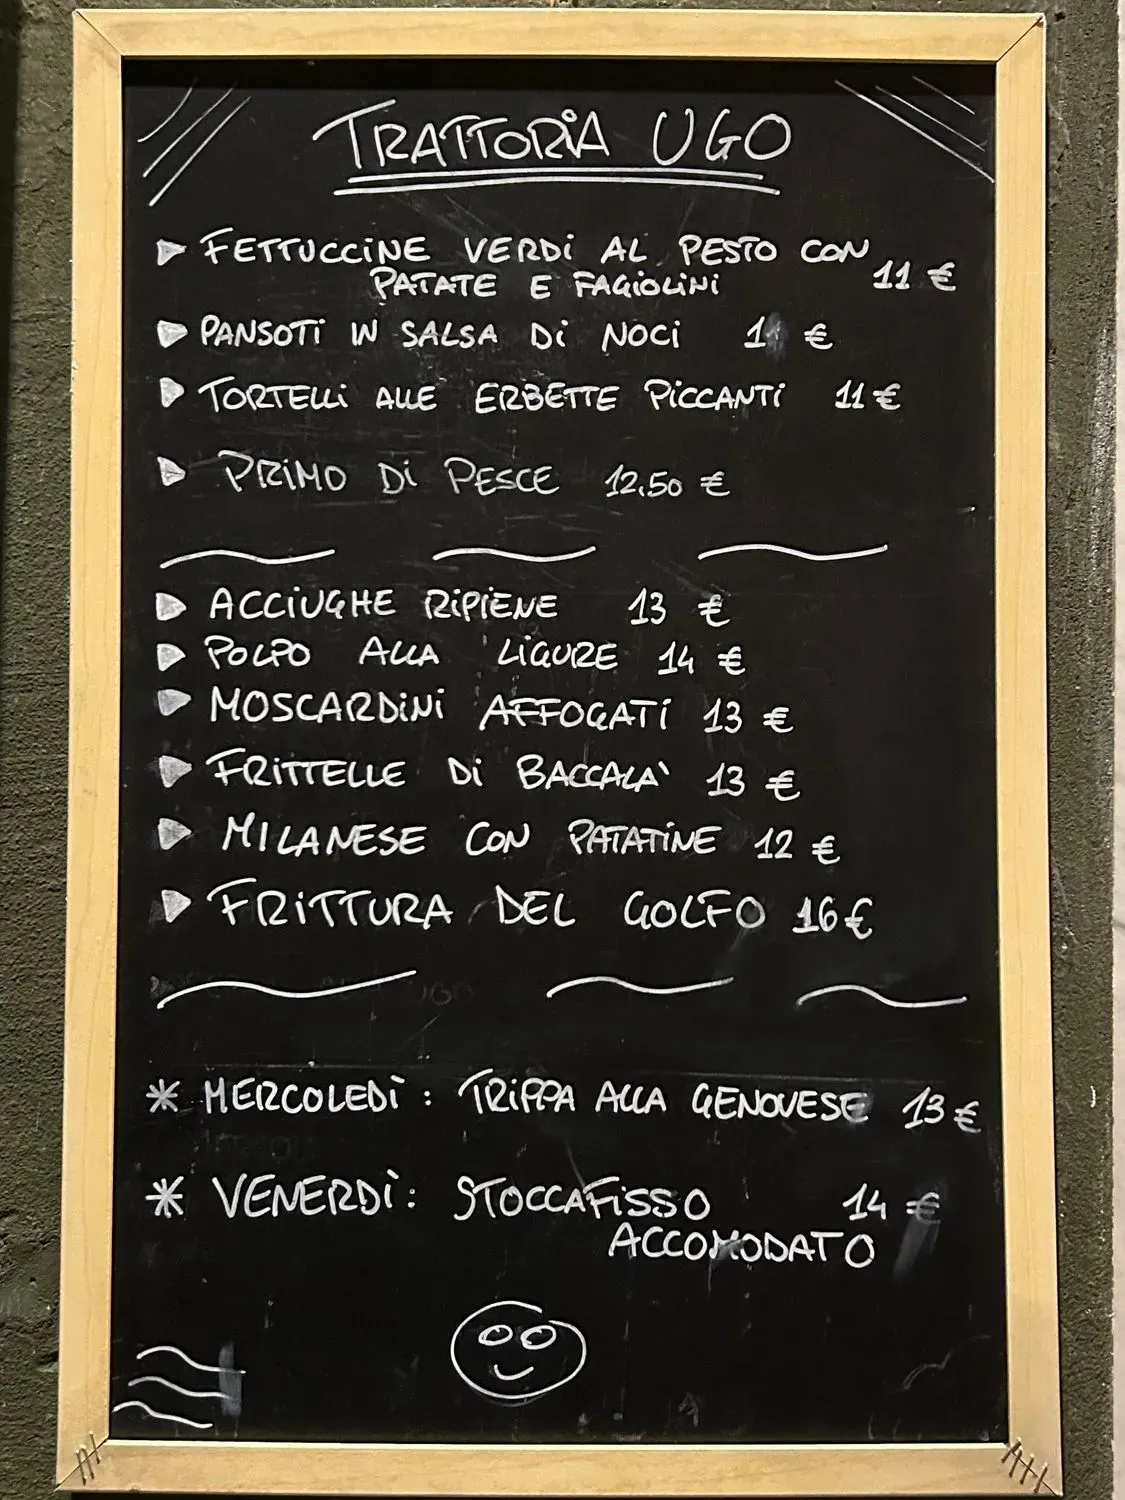 TRATTORIA UGO
FETTUCCINE VERDI AL PESTO CON
PATATE E FAGIOLINI 11 €
PANSOTI IN SALSA DI NOCI €
TORTELLI ALLE ERBETTE PICCANTI 11 €
PRIMO DI PESCE 12.50 €
ACCIUGHE RIPIENE 13 €
POLPO ALLA LIGURE 14 €
MOSCARDINI AFFOGATI 13 €
FRITTELLE DI BACCALA' 13 €
MILANESE CON PATATINE 12 €
FRITTURA DEL GOLFO 16 €
* MERCOLEDÌ: TRIPPA ALLA GENOVESE 13 €
* VENERDÌ: STOCCAFISSO 14 €
ACCOMODATO